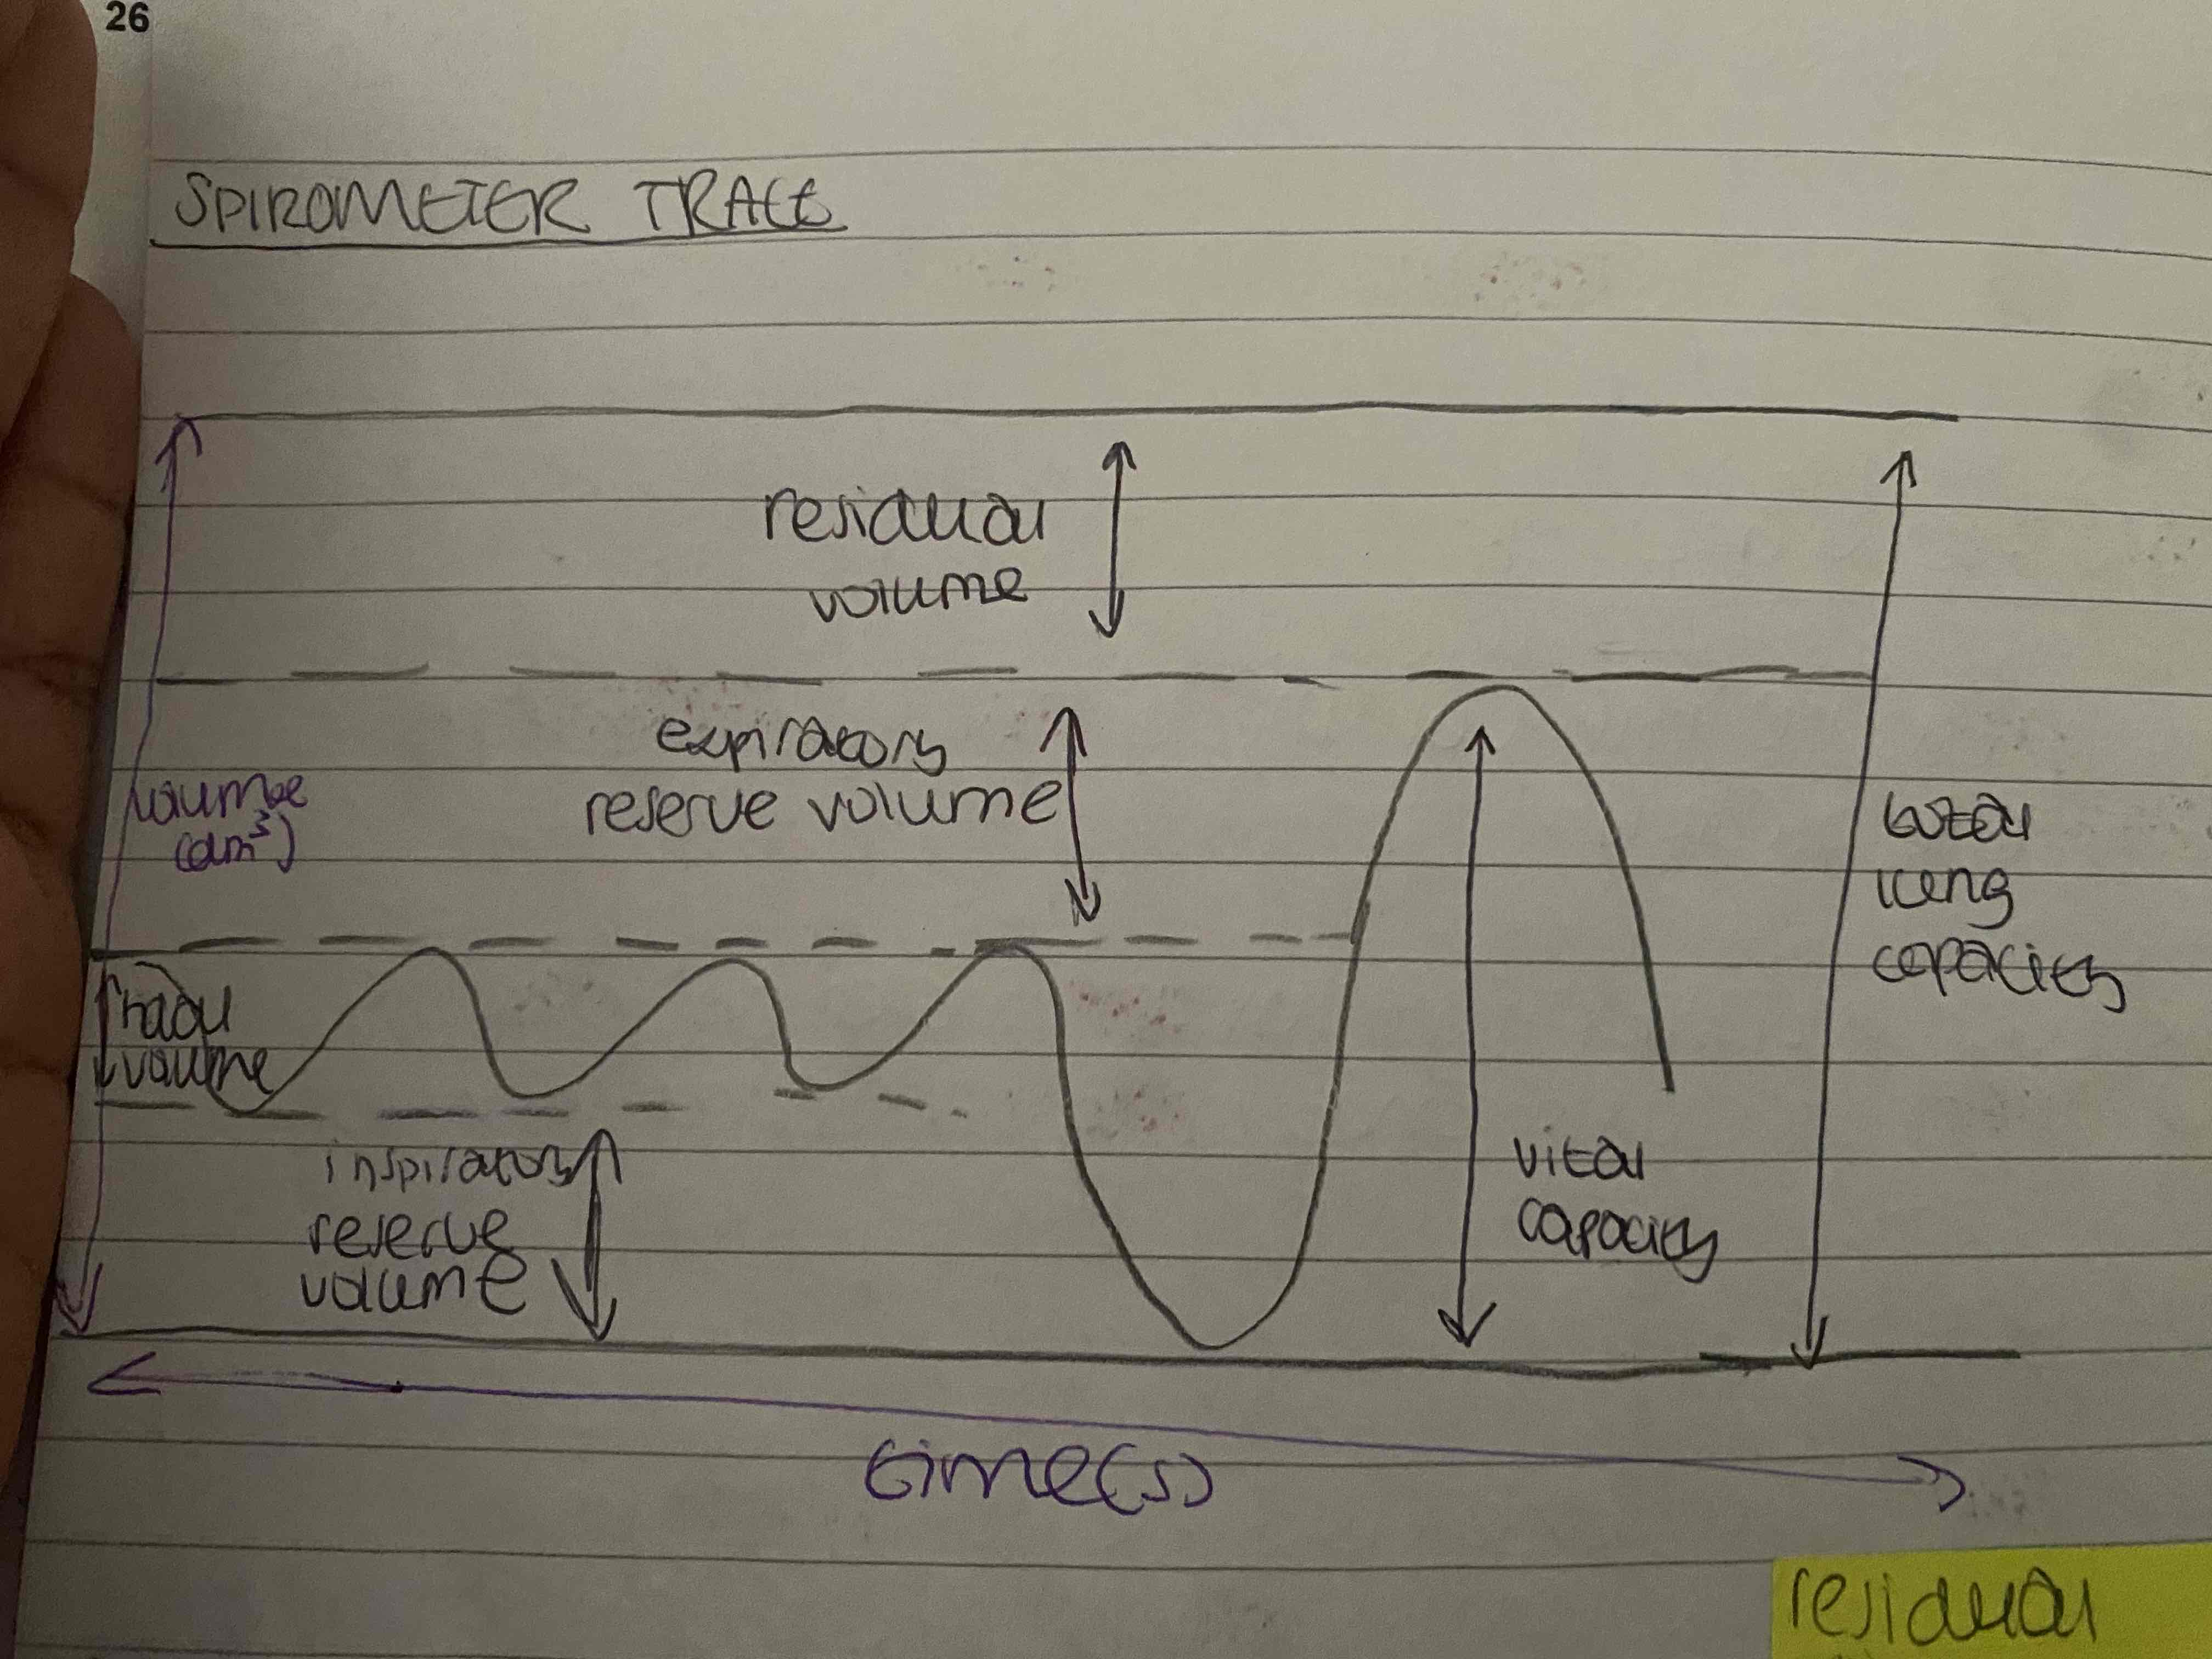 26
SPIROMETER TRACE
residual
volume
expiratory
reserve volume
volume
(dm³)
total
lung
capacity
volume
inspiratory
reserve
volume
vital
capacity
time(s)
residual